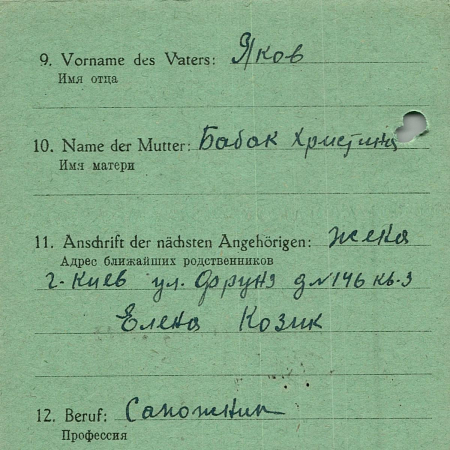 9. Vorname des Vaters: Яков
Имя отца
10. Name der Mutter: Бабак Христина
Имя матери
11. Anschrift der nächsten Angehörigen: жена
Адрес ближайших родственников
г. Киев ул. Фрунз д№146 кв-3
Елена Козик
12. Beruf: Сапожник
Профессия